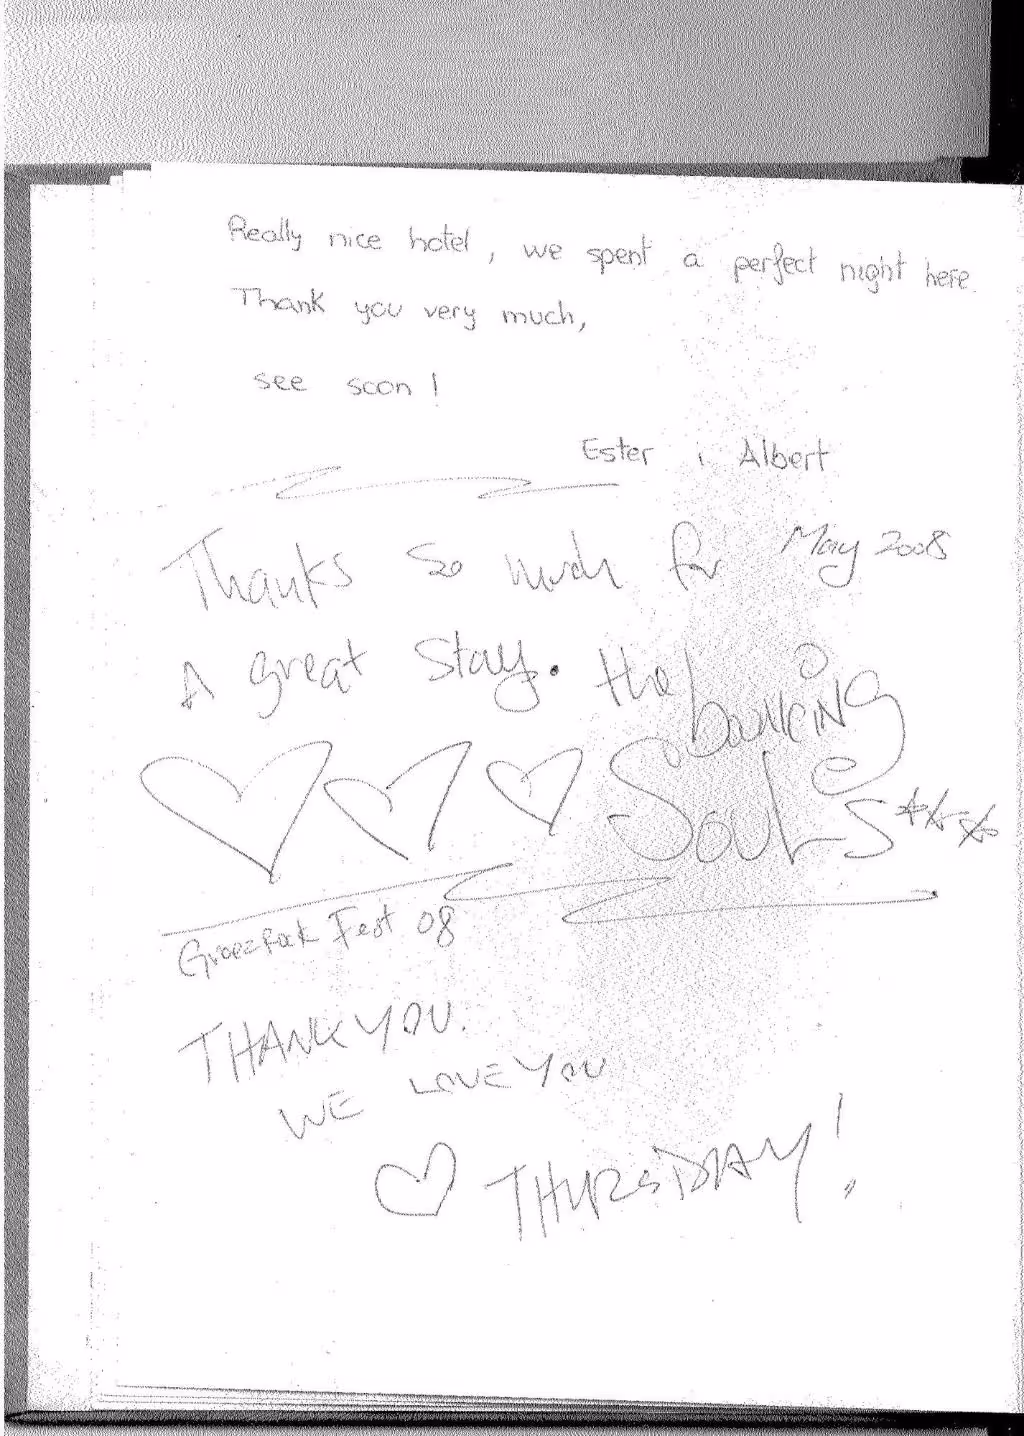 Really nice hotel, we spent a perfect night here.
Thank you very much,
see soon!
Ester i Albert
Thanks so much for
May 2008
A great stay. the
bouncing
Souls
Fest 08
THANK YOU.
WE LOVE YOU
THURSDAY!